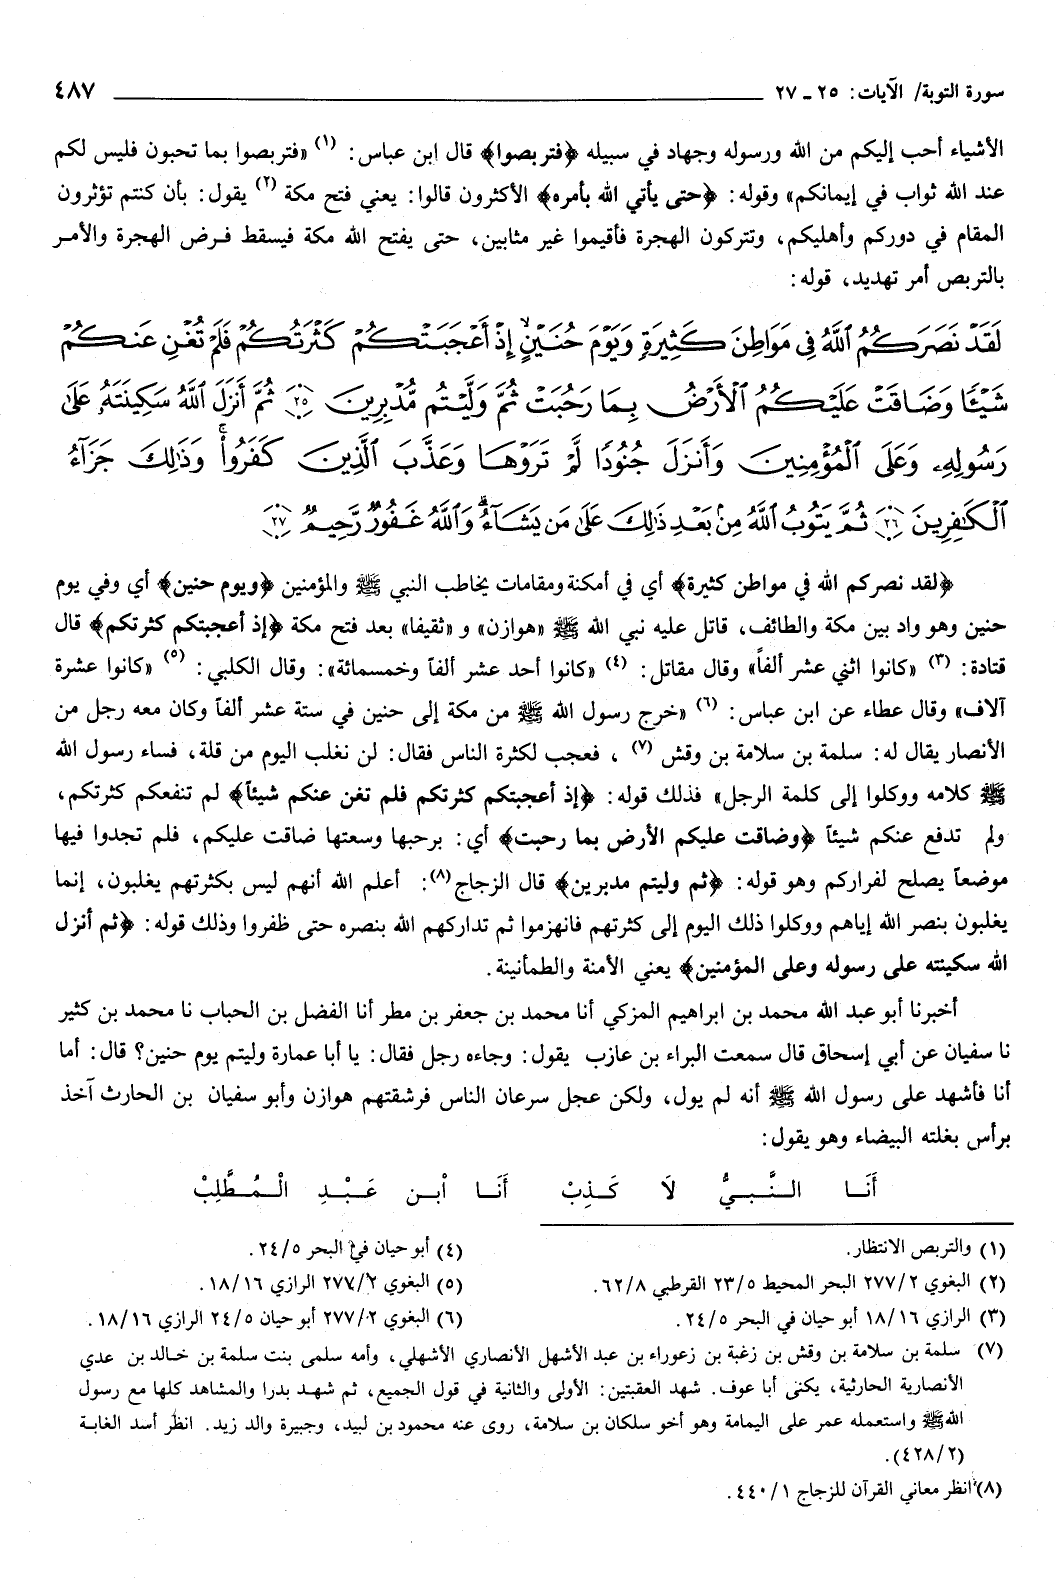 سورة التوبة/ الآيات: ٢٥ ـ ٢٧ ٤٨٧
الأشياء أحب إليكم من الله ورسوله وجهاد في سبيله ﴿فتربصوا﴾ قال ابن عباس: (١) «فتربصوا بما تحبون فليس لكم
عند الله ثواب في إيمانكم» وقوله: ﴿حتى يأتي الله بأمره﴾ الأكثرون قالوا: يعني فتح مكة (٢) يقول: بأن كنتم تؤثرون
المقام في دوركم وأهليكم، وتتركون الهجرة فأقيموا غير مثابين، حتى يفتح الله مكة فيسقط فرض الهجرة والأمر
بالتربص أمر تهديد، قوله:
لَقَدْ نَصَرَكُمُ ٱللَّهُ فِى مَوَاطِنَ كَثِيرَةٍ وَيَوْمَ حُنَيْنٍ إِذْ أَعْجَبَتْكُمْ كَثْرَتُكُمْ فَلَمْ تُغْنِ عَنكُمْ
شَيْـًٔا وَضَاقَتْ عَلَيْكُمُ ٱلْأَرْضُ بِمَا رَحُبَتْ ثُمَّ وَلَّيْتُم مُّدْبِرِينَ ﴿٢٥﴾ ثُمَّ أَنزَلَ ٱللَّهُ سَكِينَتَهُۥ عَلَىٰ
رَسُولِهِۦ وَعَلَى ٱلْمُؤْمِنِينَ وَأَنزَلَ جُنُودًا لَّمْ تَرَوْهَا وَعَذَّبَ ٱلَّذِينَ كَفَرُوا۟ ۚ وَذَٰلِكَ جَزَآءُ
ٱلْكَٰفِرِينَ ﴿٢٦﴾ ثُمَّ يَتُوبُ ٱللَّهُ مِنۢ بَعْدِ ذَٰلِكَ عَلَىٰ مَن يَشَآءُ ۗ وَٱللَّهُ غَفُورٌ رَّحِيمٌ ﴿٢٧﴾
﴿لقد نصركم الله في مواطن كثيرة﴾ أي في أمكنة ومقامات يخاطب النبي ﷺ والمؤمنين ﴿ويوم حنين﴾ أي وفي يوم
حنين وهو واد بين مكة والطائف، قاتل عليه نبي الله ﷺ «هوازن» و «ثقيفا» بعد فتح مكة ﴿إذ أعجبتكم كثرتكم﴾ قال
قتادة: (٣) «كانوا اثني عشر ألفاً» وقال مقاتل: (٤) «كانوا أحد عشر ألفاً وخمسمائة»: وقال الكلبي: (٥) «كانوا عشرة
آلاف» وقال عطاء عن ابن عباس: (٦) «خرج رسول الله ﷺ من مكة إلى حنين في ستة عشر ألفاً وكان معه رجل من
الأنصار يقال له: سلمة بن سلامة بن وقش (٧) ، فعجب لكثرة الناس فقال: لن نغلب اليوم من قلة، فساء رسول الله
ﷺ كلامه ووكلوا إلى كلمة الرجل» فذلك قوله: ﴿إذ أعجبتكم كثرتكم فلم تغن عنكم شيئاً﴾ لم تنفعكم كثرتكم،
ولم تدفع عنكم شيئاً ﴿وضاقت عليكم الأرض بما رحبت﴾ أي: برحبها وسعتها ضاقت عليكم، فلم تجدوا فيها
موضعاً يصلح لفراركم وهو قوله: ﴿ثم وليتم مدبرين﴾ قال الزجاج(٨): أعلم الله أنهم ليس بكثرتهم يغلبون، إنما
يغلبون بنصر الله إياهم ووكلوا ذلك اليوم إلى كثرتهم فانهزموا ثم تداركهم الله بنصره حتى ظفروا وذلك قوله: ﴿ثم أنزل
الله سكينته على رسوله وعلى المؤمنين﴾ يعني الأمنة والطمأنينة.
أخبرنا أبو عبد الله محمد بن ابراهيم المزكي أنا محمد بن جعفر بن مطر أنا الفضل بن الحباب نا محمد بن كثير
نا سفيان عن أبي إسحاق قال سمعت البراء بن عازب يقول: وجاءه رجل فقال: يا أبا عمارة وليتم يوم حنين؟ قال: أما
أنا فأشهد على رسول الله ﷺ أنه لم يول، ولكن عجل سرعان الناس فرشقتهم هوازن وأبو سفيان بن الحارث آخذ
برأس بغلته البيضاء وهو يقول:
أَنَـا الـنَّـبـيُّ لَا كَـذِبْ أَنَـا ابْـن عَـبْـدِ الْـمُـطَّلِبْ
(١) والتربص الانتظار.
(٢) البغوي ٢/٢٧٧ البحر المحيط ٥/٢٣ القرطبي ٨/٦٢.
(٣) الرازي ١٦/١٨ أبو حيان في البحر ٥/٢٤.
(٤) أبو حيان في البحر ٥/٢٤.
(٥) البغوي ٢/٢٧٧ الرازي ١٦/١٨.
(٦) البغوي ٢/٢٧٧ أبو حيان ٥/٢٤ الرازي ١٦/١٨.
(٧) سلمة بن سلامة بن وقش بن زغبة بن زعوراء بن عبد الأشهل الأنصاري الأشهلي، وأمه سلمى بنت سلمة بن خالد بن عدي
الأنصارية الحارثية، يكنى أبا عوف. شهد العقبتين: الأولى والثانية في قول الجميع، ثم شهد بدرا والمشاهد كلها مع رسول
الله ﷺ واستعمله عمر على اليمامة وهو أخو سلكان بن سلامة، روى عنه محمود بن لبيد، وجبيرة والد زيد. انظر أسد الغابة
(٢/٤٢٨).
(٨) انظر معاني القرآن للزجاج ١/٤٤٠.